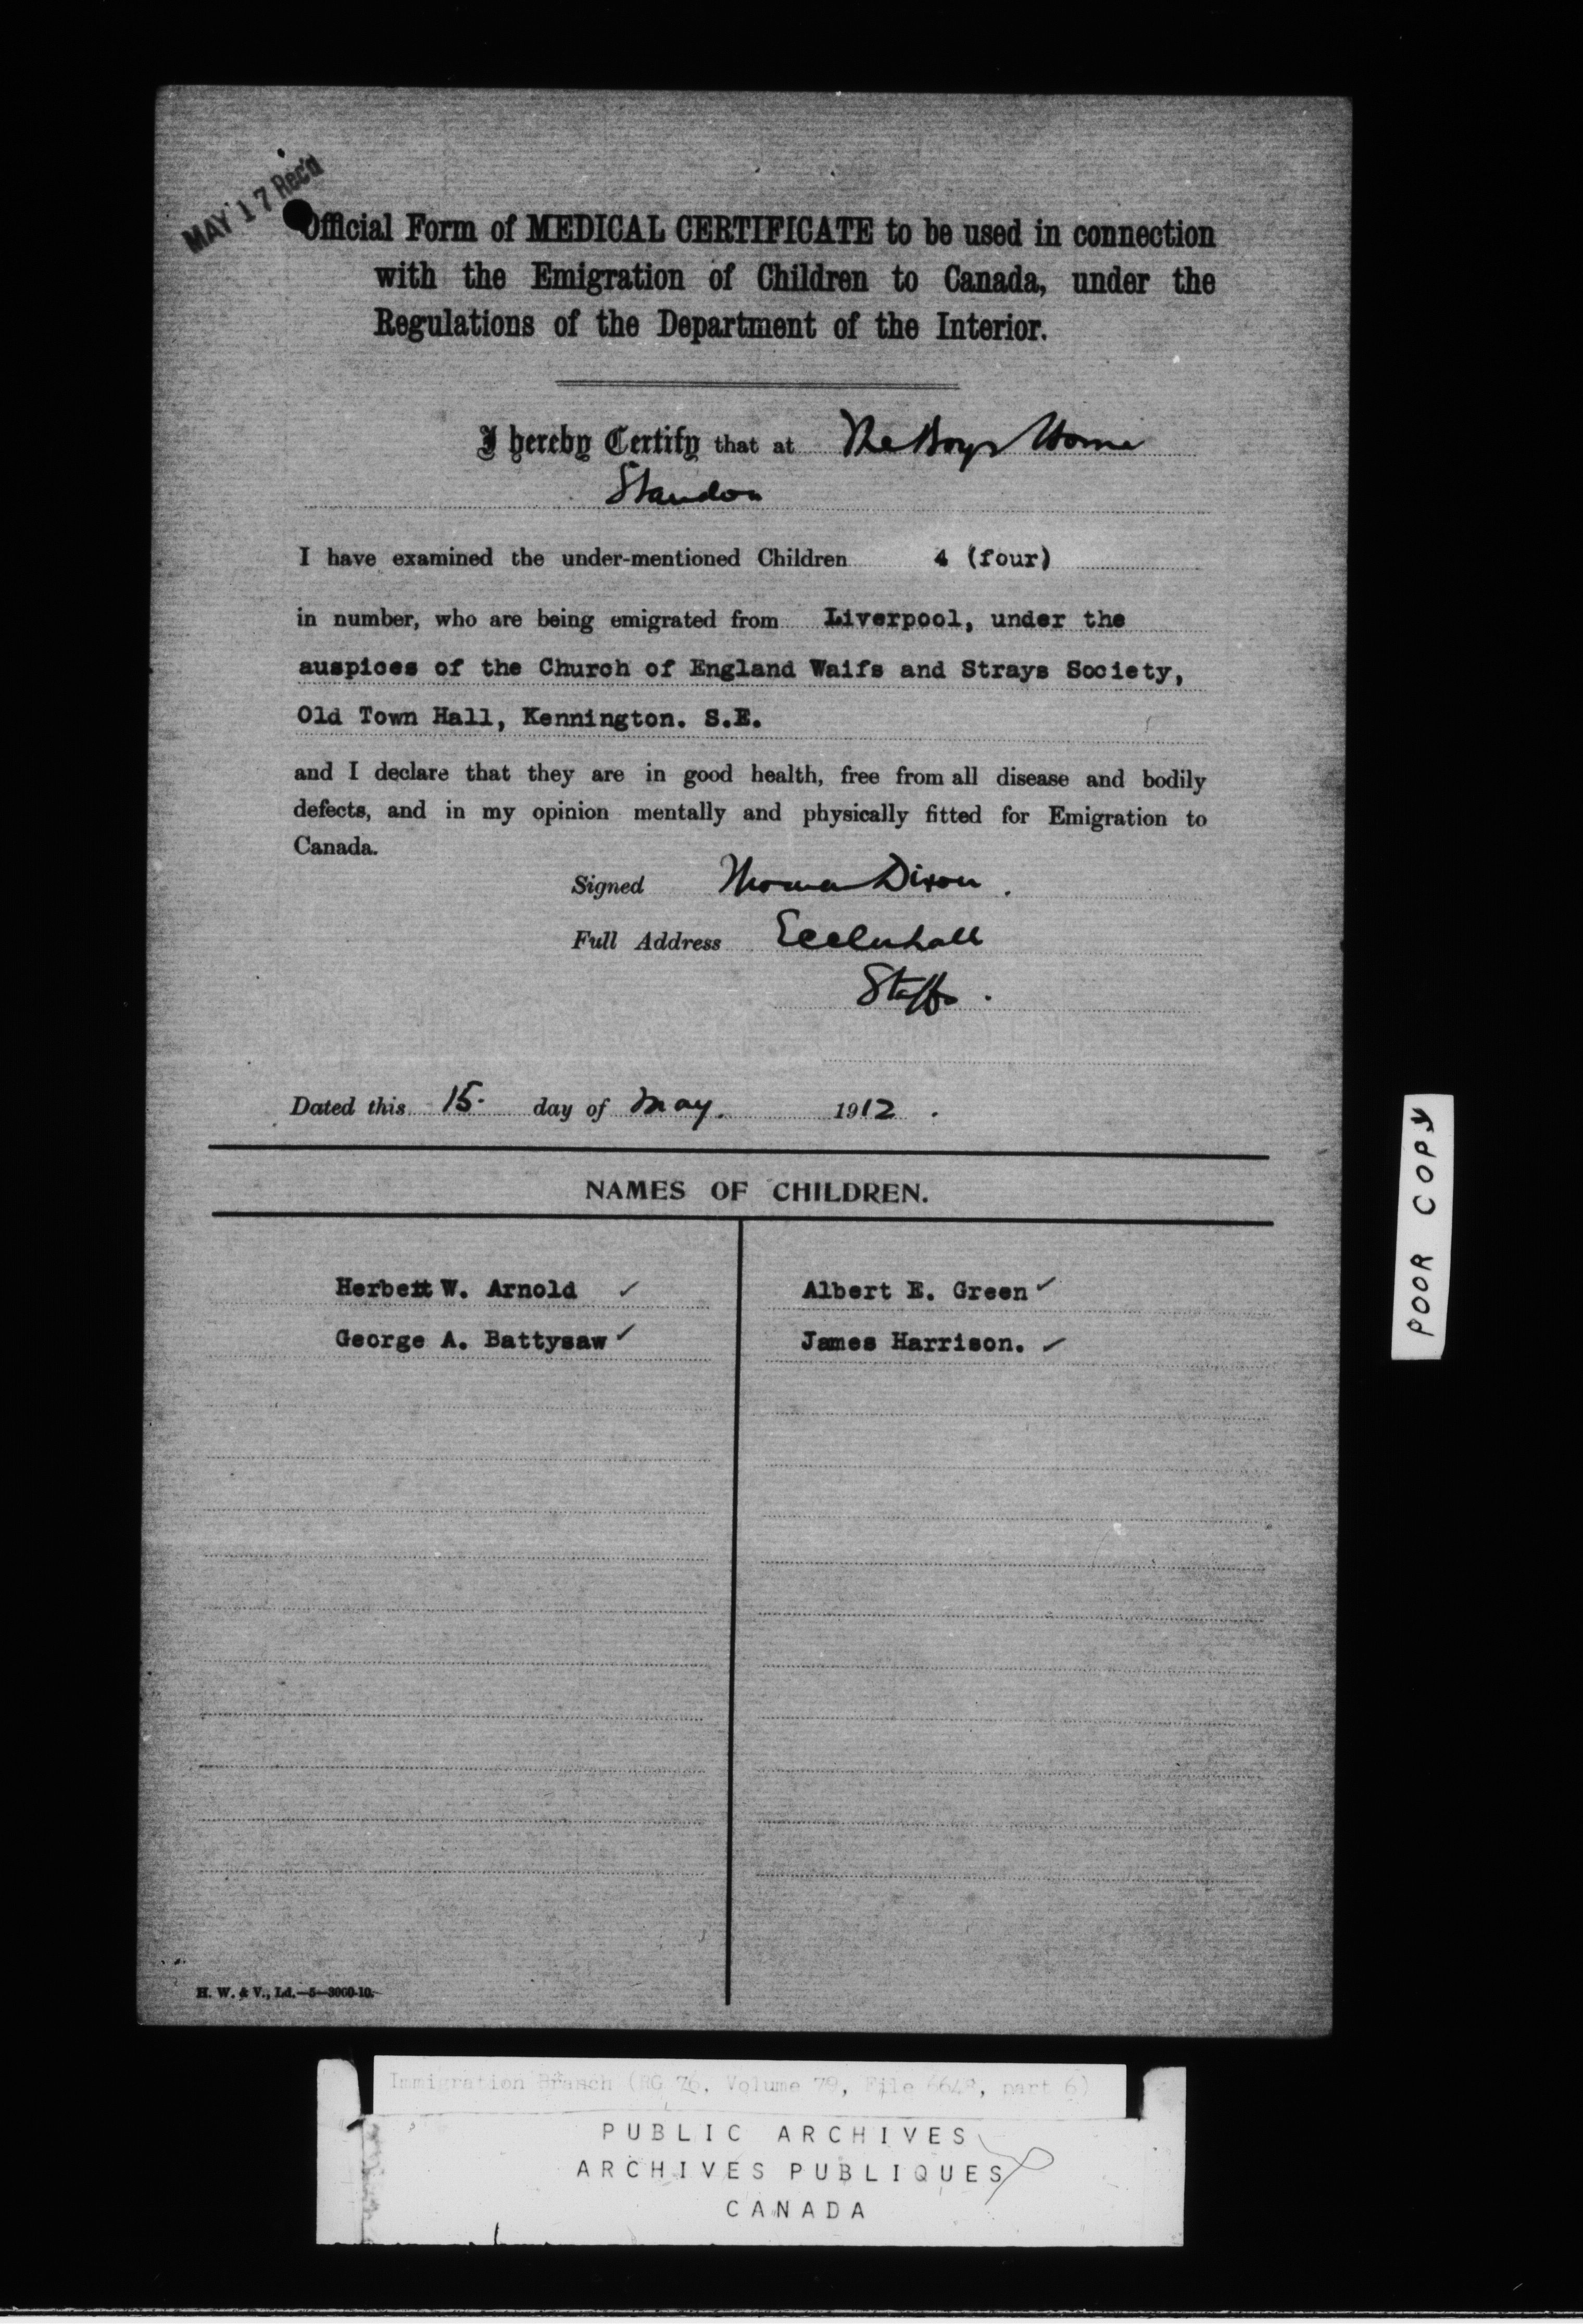 MAY 17 Rec'd
Official Form of MEDICAL CERTIFICATE to be used in connection
with the Emigration of Children to Canada, under the
Regulations of the Department of the Interior.
I hereby Certify that at The Boys Home
Standon
I have examined the under-mentioned Children 4 (four)
in number, who are being emigrated from Liverpool, under the
auspices of the Church of England Waifs and Strays Society,
Old Town Hall, Kennington. S.E.
and I declare that they are in good health, free from all disease and bodily
defects, and in my opinion mentally and physically fitted for Emigration to
Canada.
Signed Thomas Dixon.
Full Address Eccleshall
Staffs.
Dated this 15. day of May. 1912.
NAMES OF CHILDREN.
Herbert W. Arnold ✓ Albert E. Green ✓
George A. Battysaw ✓ James Harrison. ✓
H. W. & V., Ld.—5—3000-10.
POOR COPY
Immigration Branch (RG 76, Volume 79, File 6648, part 6)
PUBLIC ARCHIVES
ARCHIVES PUBLIQUES
CANADA